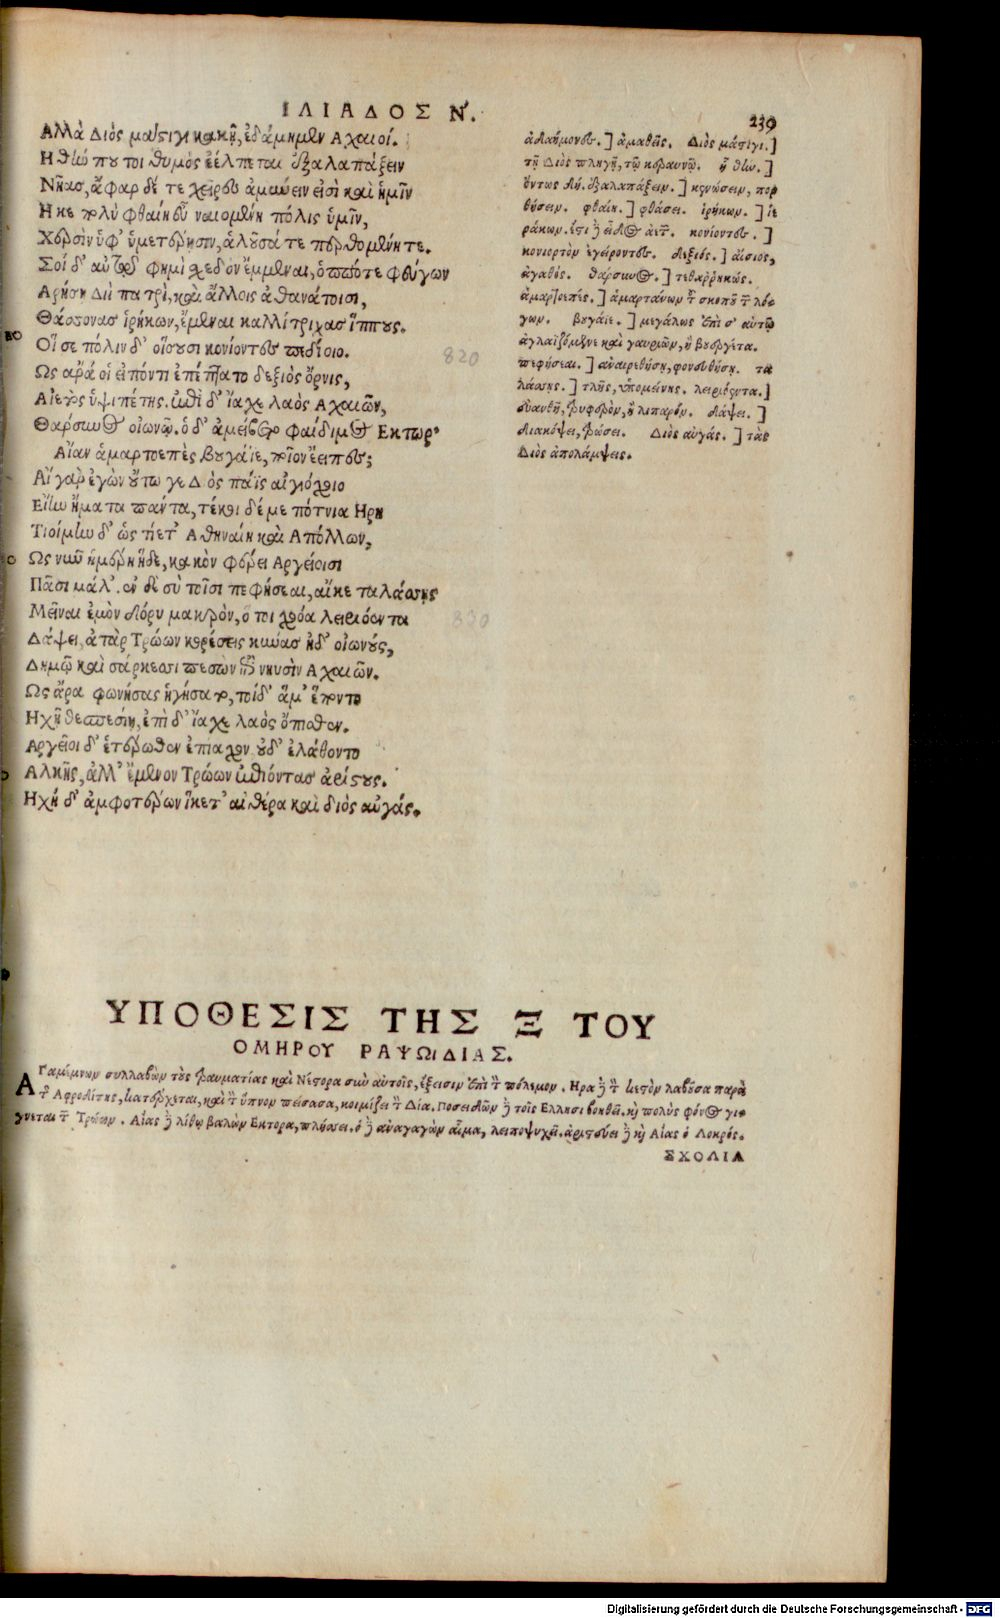 ΙΛΙΑΔΟΣ Ν.
239
Αλλὰ Διὸς μάστιγι κακῇ, ἐδάμημεν Αχαιοί.
Η θίω που τοι θυμὸς ἐέλπεται ἐξαλαπάξειν
Νῆας, ἄφαρ δέ τε χεῖρες ἀμύνειν εἰσὶ καὶ ἡμῖν
Η κε πολὺ φθαίη εὖ ναιομένη πόλις ὑμῖν,
Χερσὶν ὑφ' ἡμετέρῃσιν, ἁλοῦσά τε περθομένη τε.
Σοὶ δ' αὐτῷ φημὶ σχεδὸν ἔμμεναι, ὁππότε φεύγων
Αρήσῃ Διὶ πατρὶ, καὶ ἄλλοις ἀθανάτοισι,
Θάσσονας ἰρήκων, ἔμεναι καλλίτριχας ἵππους.
Οἵ σε πόλιν δ' οἴσουσι κονίοντες πεδίοιο.
820
Ως ἄρα οἱ εἰπόντι ἐπέπτατο δεξιὸς ὄρνις,
Αἰετὸς ὑψιπέτης. ἐπὶ δ' ἴαχε λαὸς Αχαιῶν,
Θάρσυνος οἰωνῷ. ὁ δ' ἀμείβετο φαίδιμος Εκτωρ·
Αἶαν ἁμαρτοεπὲς βουγάϊε, ποῖον ἔειπες;
Αἲ γὰρ ἐγὼν οὕτω γε Διὸς πάϊς αἰγιόχοιο
Εἴην ἤματα πάντα, τέκοι δέ με πότνια Ηρη
Τιοίμην δ' ὡς τίετ' Αθηναίη καὶ Απόλλων,
Ως νῦν ἡμέρη ἥδε, κακὸν φέρει Αργείοισι
Πᾶσι μάλ'. ἐν δὲ σὺ τοῖσι πεφήσεαι, αἴ κε ταλάσσῃς
Μεῖναι ἐμὸν δόρυ μακρὸν, ὅ τοι χρόα λειριόεντα
830
Δάψει, ἀτὰρ Τρώων κορέσεις κύνας ἠδ' οἰωνούς,
Δημῷ καὶ σάρκεσσι πεσὼν ἐπὶ νηυσὶν Αχαιῶν.
Ως ἄρα φωνήσας ἡγήσατο, τοὶ δ' ἅμ' ἕποντο
Ηχῇ θεσπεσίῃ, ἐπὶ δ' ἴαχε λαὸς ὄπισθεν.
Αργεῖοι δ' ἑτέρωθεν ἐπίαχον οὐδ' ἐλάθοντο
Αλκῆς, ἀλλ' ἔμενον Τρώων ἐπιόντας ἀρίστους.
Ηχὴ δ' ἀμφοτέρων ἵκετ' αἰθέρα καὶ διὸς αὐγάς.
ἀδαήμονες.] ἀμαθεῖς. Διὸς μάστιγι.]
τῇ Διὸς πληγῇ, τῷ κεραυνῷ. ἦ θίω.]
ὄντως δή. ἐξαλαπάξειν.] κενώσειν, πορ
θήσειν. φθαίη.] φθάσει. ἰρήκων.] ἱε
ράκων. ἔστι δὲ εἶδος ἀετοῦ. κονίοντες.]
κονιορτὸν ἐγείροντες. δεξιός.] αἴσιος,
ἀγαθός. θάρσυνος.] τεθαῤῥηκώς.
ἁμαρτοεπές.] ἁμαρτάνων τοῦ σκοποῦ τῶν λό-
γων. βουγάϊε.] μεγάλως ἐπὶ σ' αὐτῷ
ἀγλαϊζόμενε καὶ γαυριῶν, ἢ βουεργέτα.
πεφήσεαι.] ἀναιρεθήσῃ, φονευθήσῃ. τα
λάσσῃς.] τλῇς, ὑπομείνῃς. λειριόεντα.]
εὐανθῆ, τρυφερὸν, ἢ λιπαρόν. δάψει.]
διακόψει, τρώσει. Διὸς αὐγάς.] τὰς
Διὸς ἀπολάμψεις.
ΥΠΟΘΕΣΙΣ ΤΗΣ Ξ ΤΟΥ
ΟΜΗΡΟΥ ΡΑΨΩΙΔΙΑΣ.
Αγαμέμνων συλλαβὼν τοὺς τραυματίας καὶ Νέστορα σὺν αὐτοῖς, ἔξεισιν ἐπὶ τὸν πόλεμον. Ηρα δὲ τὸν κεστὸν λαβοῦσα παρὰ
τῆς Αφροδίτης, κατέρχεται, καὶ τὸν ὕπνον πείσασα, κοιμίζει τὸν Δία. Ποσειδῶν δὲ τοῖς Ελλησι βοηθεῖ. καὶ πολὺς φόνος γί-
γνεται τῶν Τρώων. Αἴας δὲ λίθῳ βαλὼν Εκτορα, πλήσσει. ὁ δὲ ἀναγαγὼν αἷμα, λειποψυχεῖ. ἀριστεύει δὲ καὶ Αἴας ὁ Λοκρός.
ΣΧΟΛΙΑ
Digitalisierung gefördert durch die Deutsche Forschungsgemeinschaft - DFG